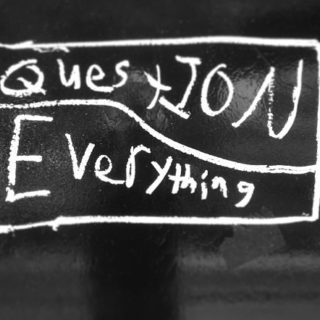 QuestION
Everything